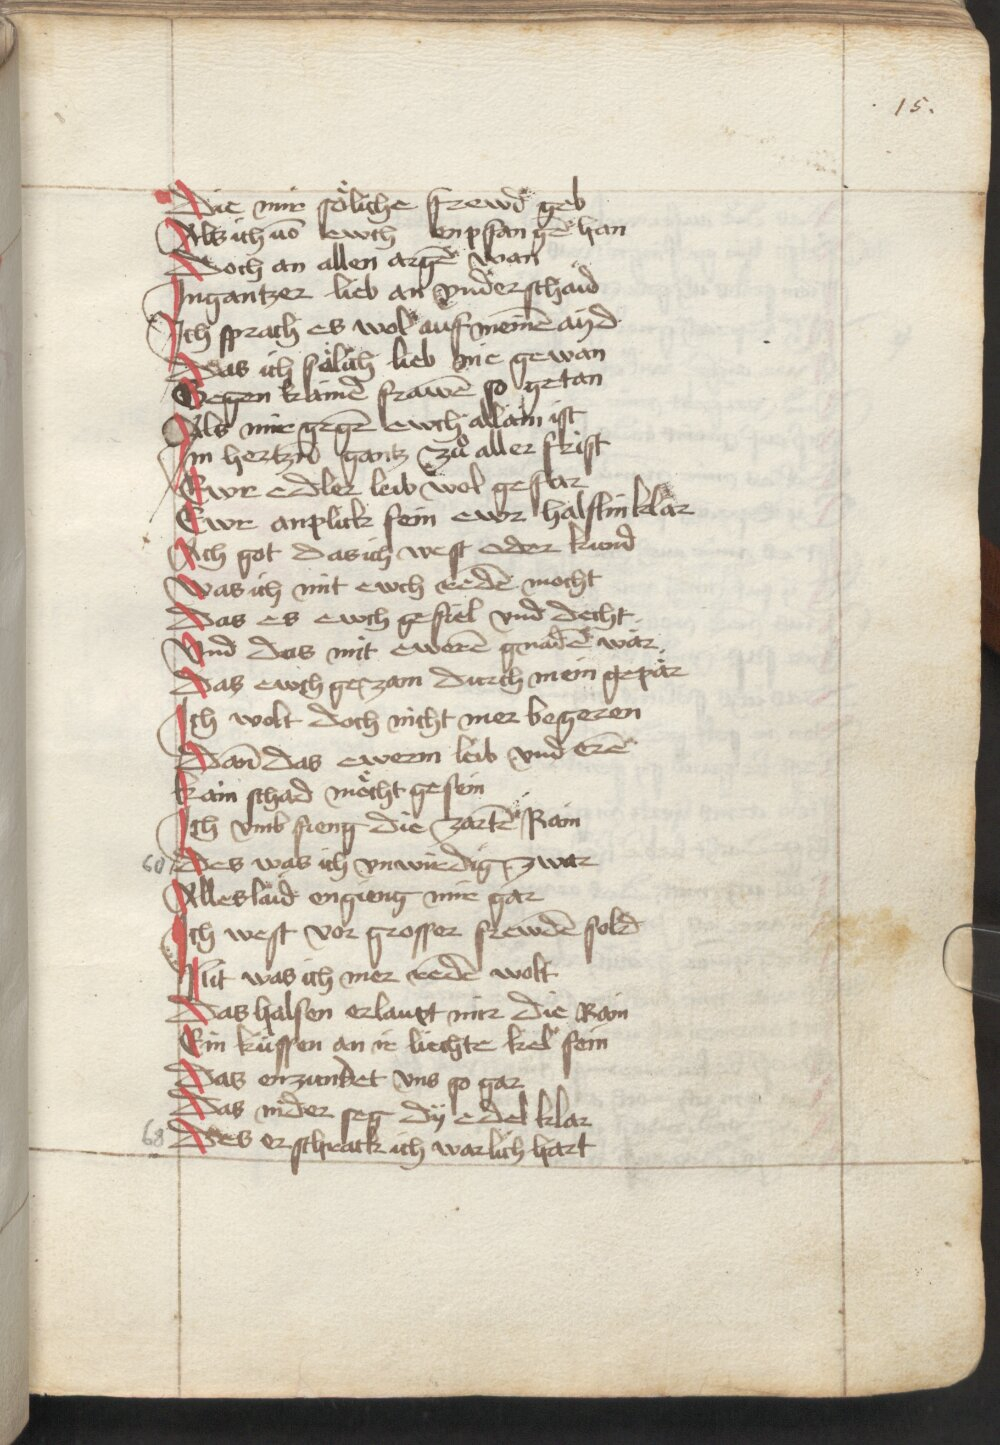 15.
Die mir söliche frewd geb
Als ich vō ewch enpfangē han
Doch an allen argē wan
In gantzer lieb an vnderschaid
Ich sprach es wol auf meinē ayd
Das ich sölich lieb nie gewan
Gegen kainē frawē so getan
Als mir gegē ewch allain ist
Im hertzn̄ gantz zů aller frist
Ewr edler leib wol gefar
Ewr anplick fein ewr hälslin klar
Ach got das ich west oder kund
Was ich mit ewch redē mocht
Das es ewch gefiel vnd decht
Vnd das mit ewerē gnadē wär
Das ewch gezam durch mein gepär
Ich wolt doch nicht mer begeren
Dañ das ewerm leib vnd erē
kain schad möcht gesein
Ich vmb fieng die zartē Rain
60 Des was ich vnwirdig zwar
Alles laid engieng mir gar
Ich west vor grosser frewdē sold
Nit was ich mer redē wolt
Das halsen erlaupt mir die Rain
Ein küssen an ir liechte kel fein
Das enzundet vns so gar
Das nider seg dÿ edel klar
68 Des erschrack ich warlich hart